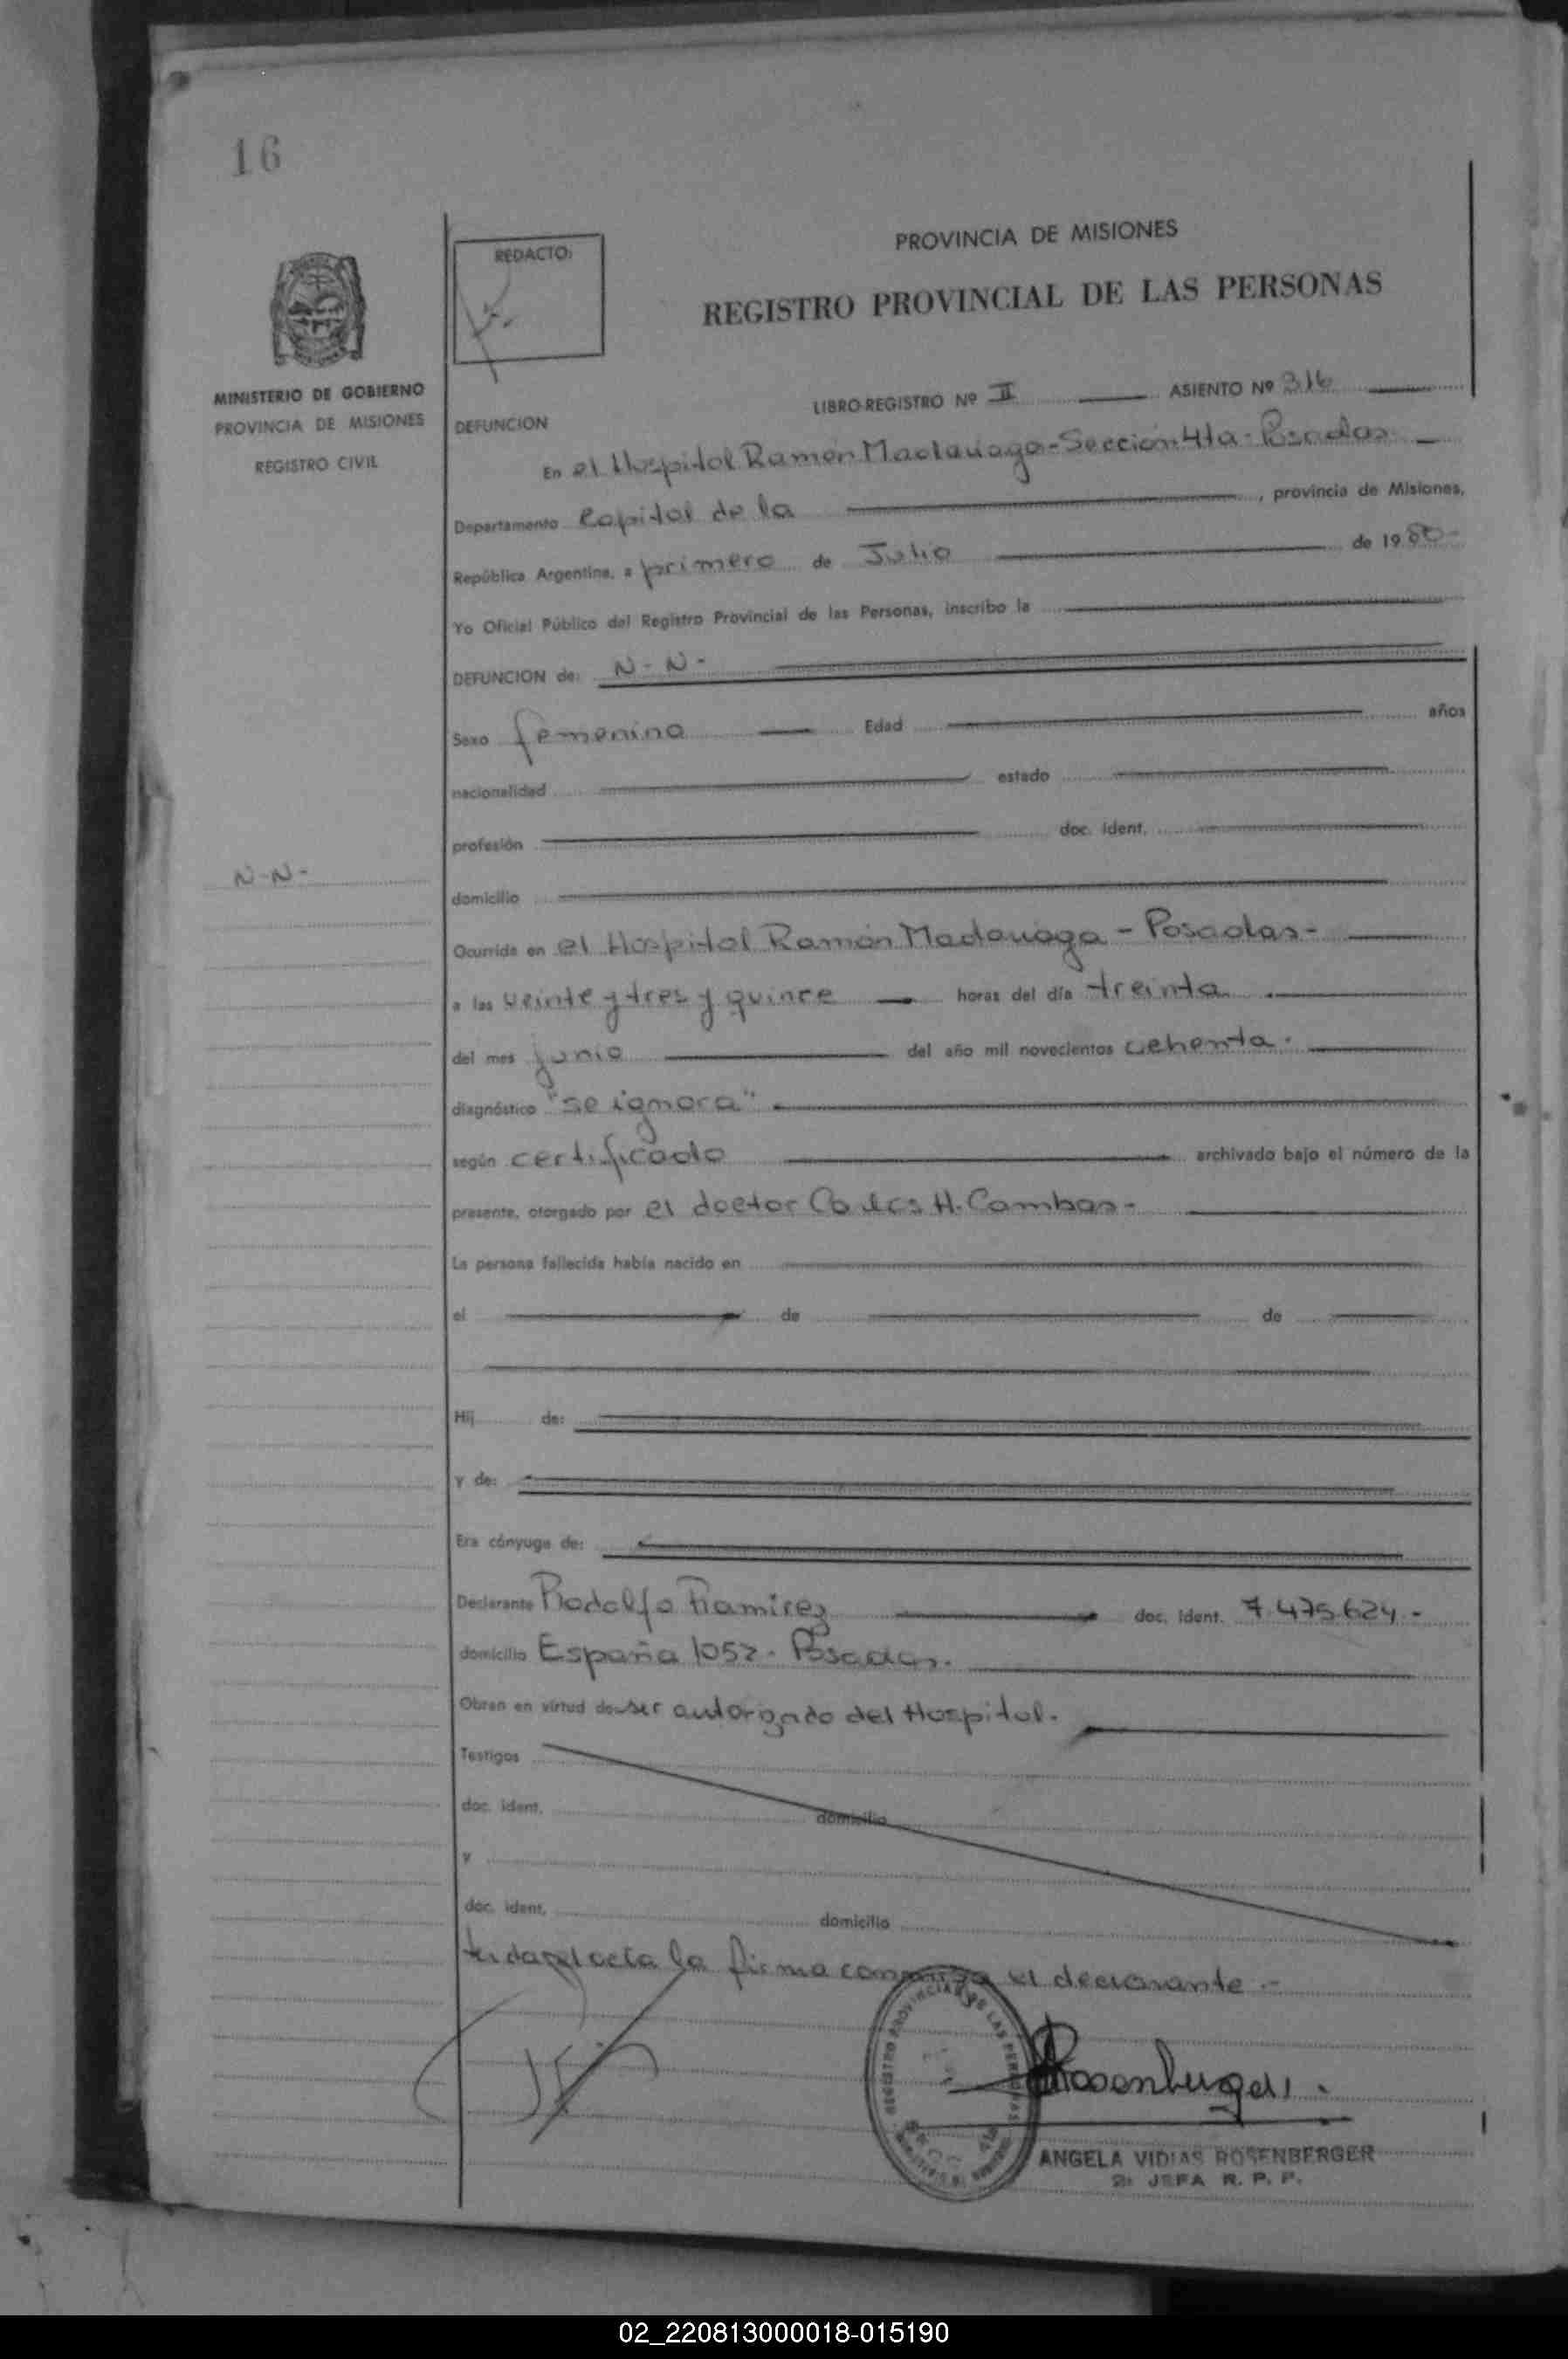 16
REDACTO:
PROVINCIA DE MISIONES
REGISTRO PROVINCIAL DE LAS PERSONAS
MINISTERIO DE GOBIERNO
PROVINCIA DE MISIONES
REGISTRO CIVIL
LIBRO-REGISTRO Nº II ASIENTO Nº 316
DEFUNCION
En el Hospital Ramón Madariaga - Sección 4ta - Posadas
Departamento Capital de la , provincia de Misiones,
República Argentina, a primero de Julio de 1980-
Yo Oficial Público del Registro Provincial de las Personas, inscribo la
DEFUNCION de: N-N-
Sexo femenino Edad años
nacionalidad estado
profesión doc. ident.
N-N-
domicilio
Ocurrida en el Hospital Ramón Madariaga - Posadas-
a las veinte y tres y quince horas del día treinta
del mes junio del año mil novecientos ochenta.
diagnóstico "se ignora"
según certificado archivado bajo el número de la
presente, otorgado por el doctor Carlos H. Cambas-
La persona fallecida había nacido en
el de de
Hij de:
y de:
Era cónyuge de:
Declarante Rodolfo Ramirez doc. ident. 7.475.624.-
domicilio España 1052. Posadas.
Obran en virtud de ser autorizado del Hospital.
Testigos
doc. ident. domicilio
y
doc. ident. domicilio
acta la firma conmigo el declarante.-
REGISTRO PROVINCIAL DE LAS PERSONAS
Rosenberger
ANGELA VIDIAS ROSENBERGER
2ª JEFA R. P. P.
02_220813000018-015190